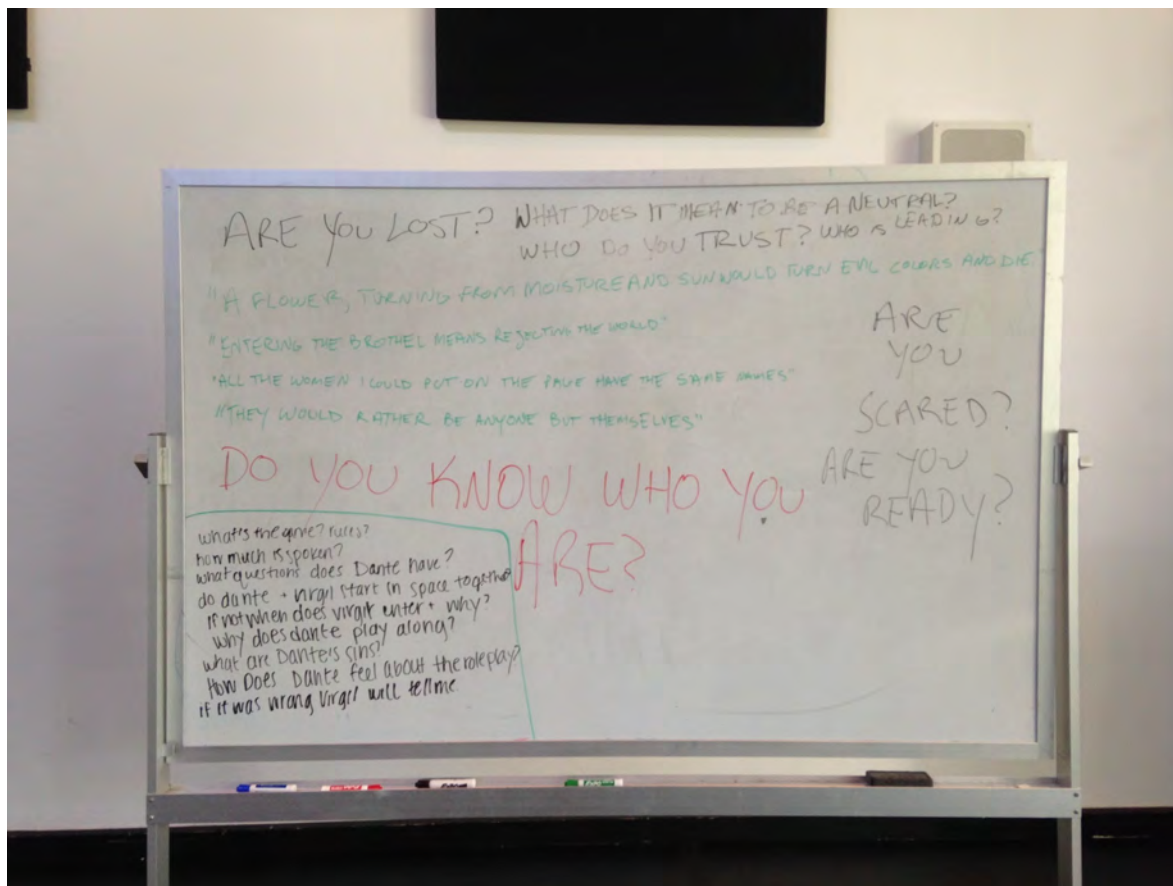 ARE YOU LOST?
WHAT DOES IT MEAN TO BE A NEUTRAL?
WHO DO YOU TRUST? WHO IS LEADING?
"A FLOWER, TURNING FROM MOISTURE AND SUN WOULD TURN EVIL COLORS AND DIE.
"ENTERING THE BROTHEL MEANS REJECTING THE WORLD"
"ALL THE WOMEN I COULD PUT ON THE PAGE HAVE THE SAME NAMES"
"THEY WOULD RATHER BE ANYONE BUT THEMSELVES"
ARE
YOU
SCARED?
ARE YOU
READY?
DO YOU KNOW WHO YOU
ARE?
what's the game? rules?
how much is spoken?
what questions does Dante have?
do dante + virgil start in space together
if not when does virgil enter + why?
why does dante play along?
what are Dante's sins?
How Does Dante feel about the roleplay?
if it was wrong Virgil will tell me.